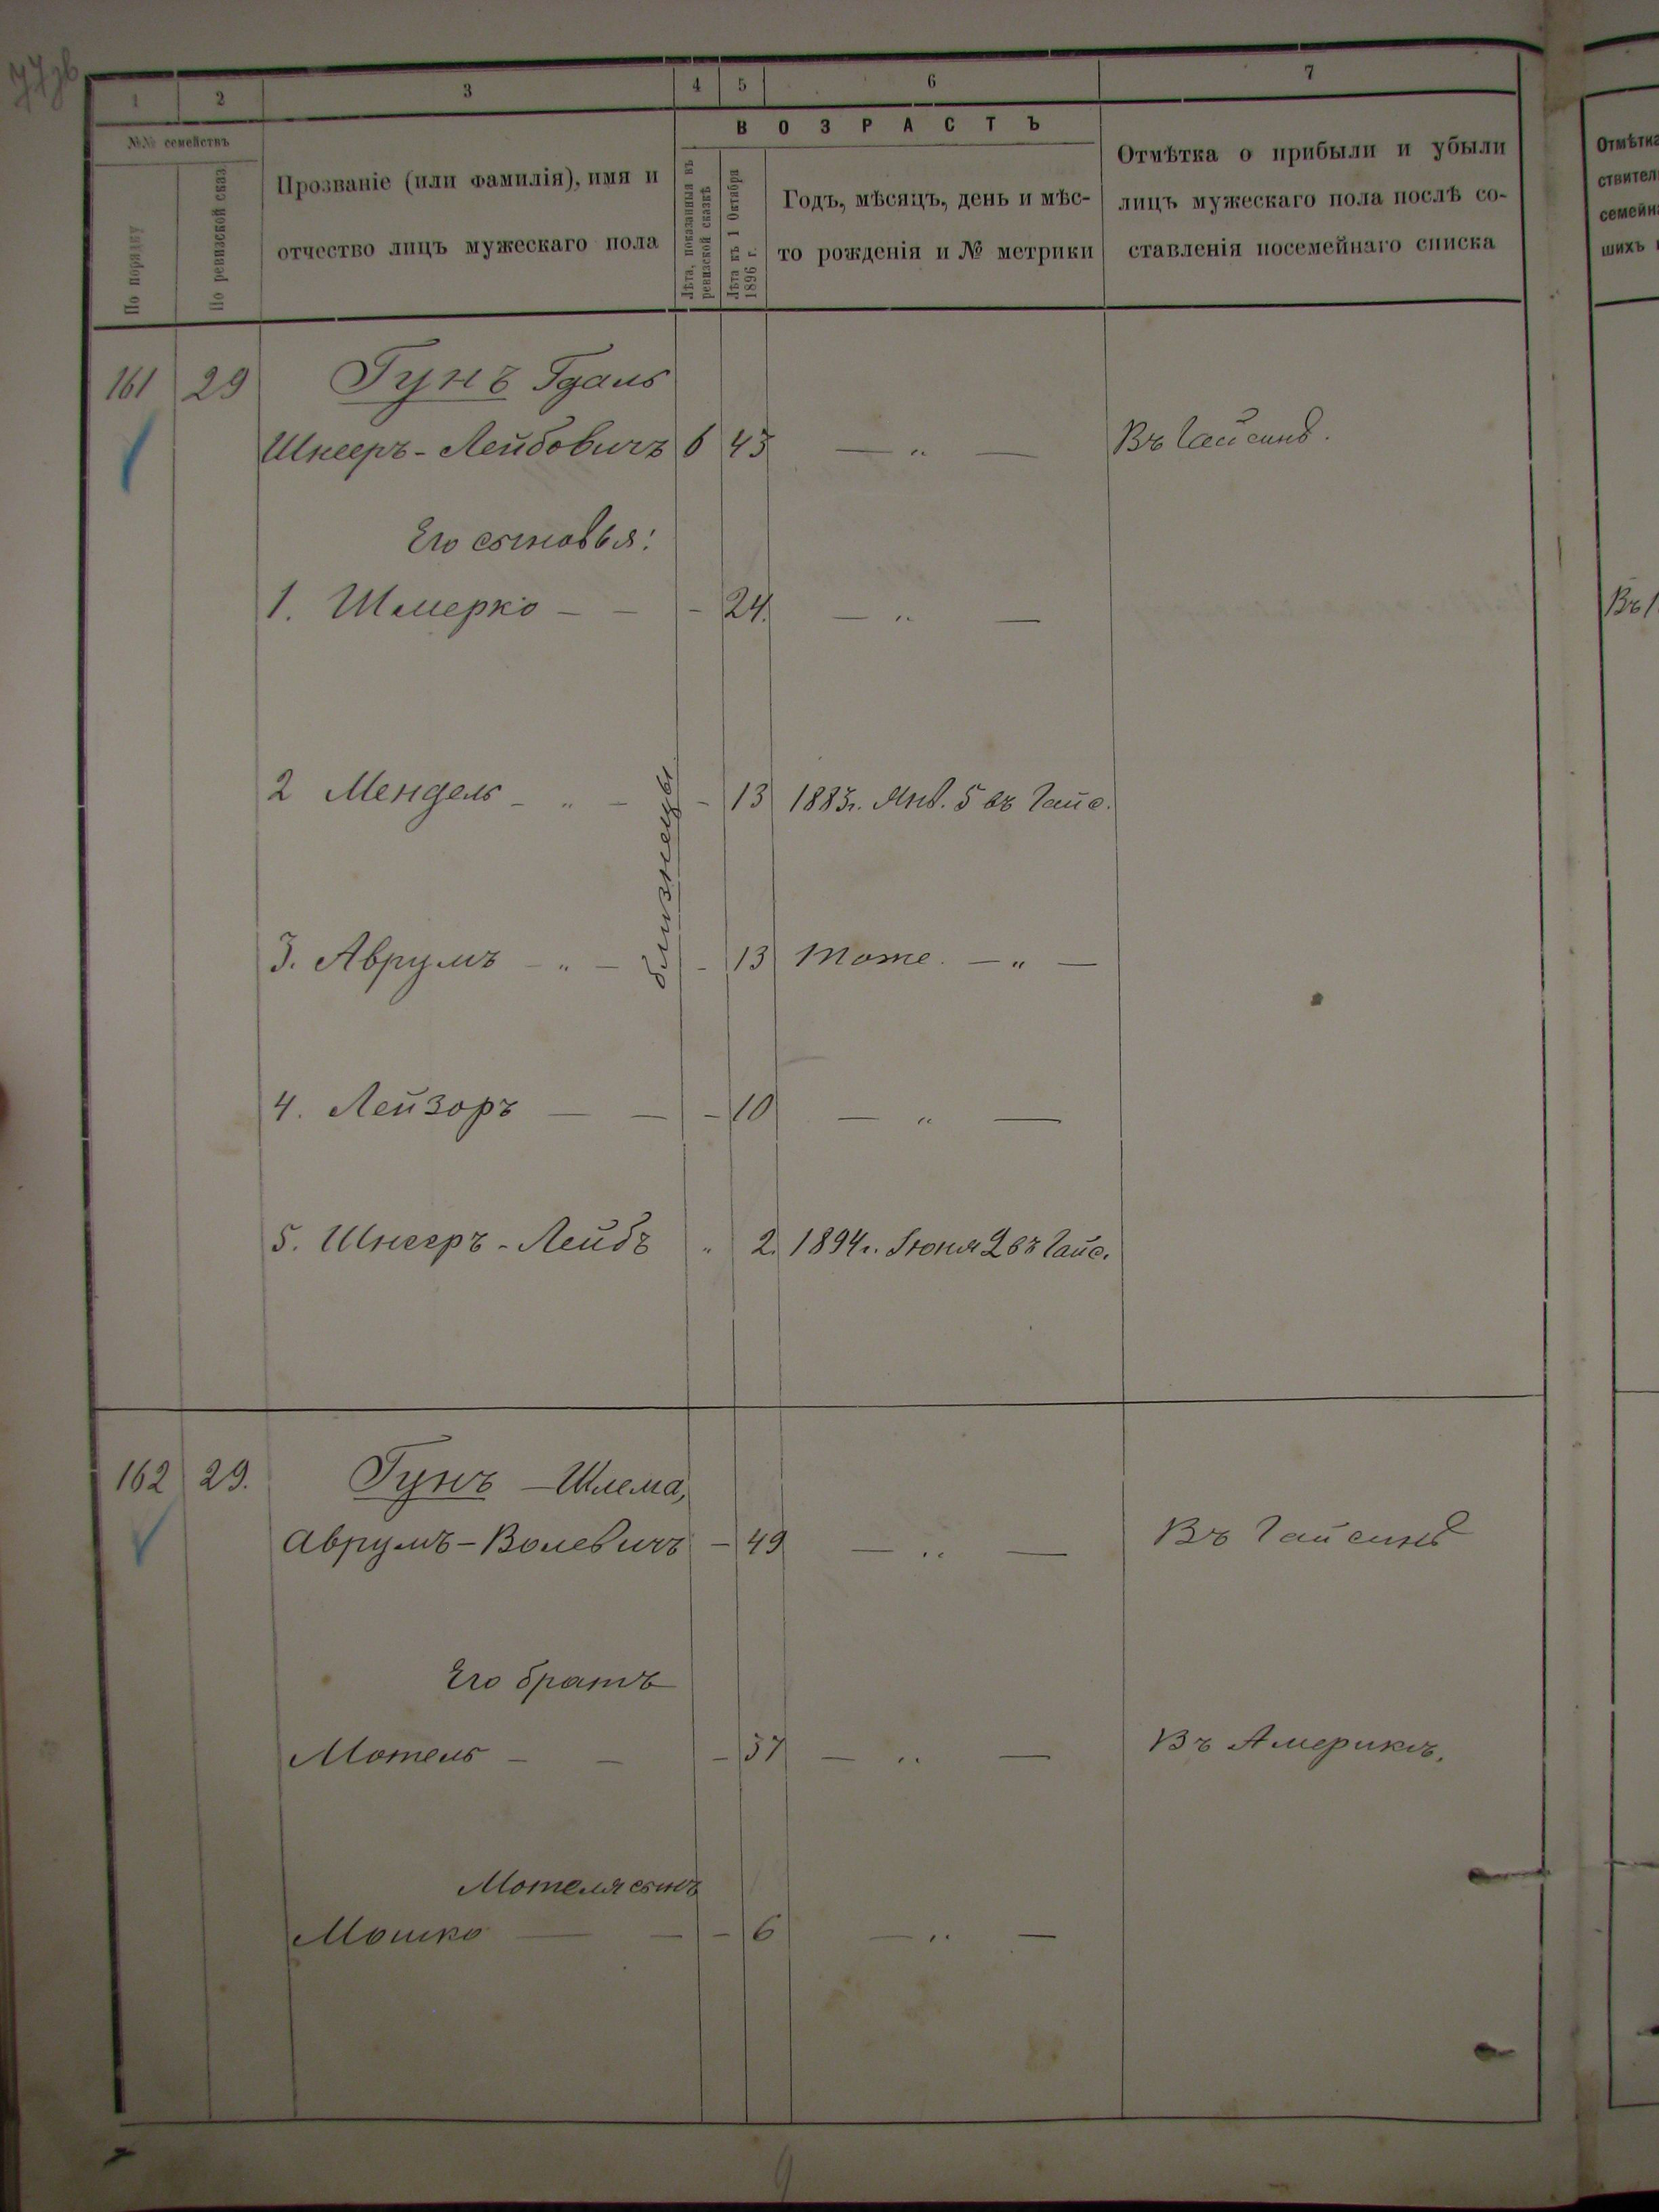 77зв
1 2 3 4 5 6 7
№№ семействъ
По порядку
По ревизской сказ
Прозваніе (или фамилія), имя и
отчество лицъ мужескаго пола
ВОЗРАСТЪ
Лѣта, показанныя въ
ревизской сказкѣ
Лѣта къ 1 Октября
1896 г.
Годъ, мѣсяцъ, день и мѣс-
то рожденія и № метрики
Отмѣтка о прибыли и убыли
лицъ мужескаго пола послѣ со-
ставленія посемейнаго списка
Отмѣтка
ствител
семейн
шихъ
161 29 Гунъ Гдаль
Шнееръ-Лейбовичъ 6 43 — „ — Въ Гайсинѣ.
Его сыновья:
1. Шмерко — — - 24. — „ —
Въ
2 Мендель - „ - - 13 1883г. Янв. 5 въ Гайс.
близнецы
3. Аврумъ - „ - - 13 Тоже. — „ —
4. Лейзоръ — — - 10 — „ —
5. Шнееръ-Лейбъ „ 2. 1894г. Іюня 2 въ Гайс.
162 29. Гунъ — Шлема,
Аврумъ-Волевичъ - 49 — „ — Въ Гайсинѣ
Его братъ
Мотель - — - 37 — „ — Въ Америкѣ.
Мотеля сынъ
Мошко — — - 6 — „ —
9